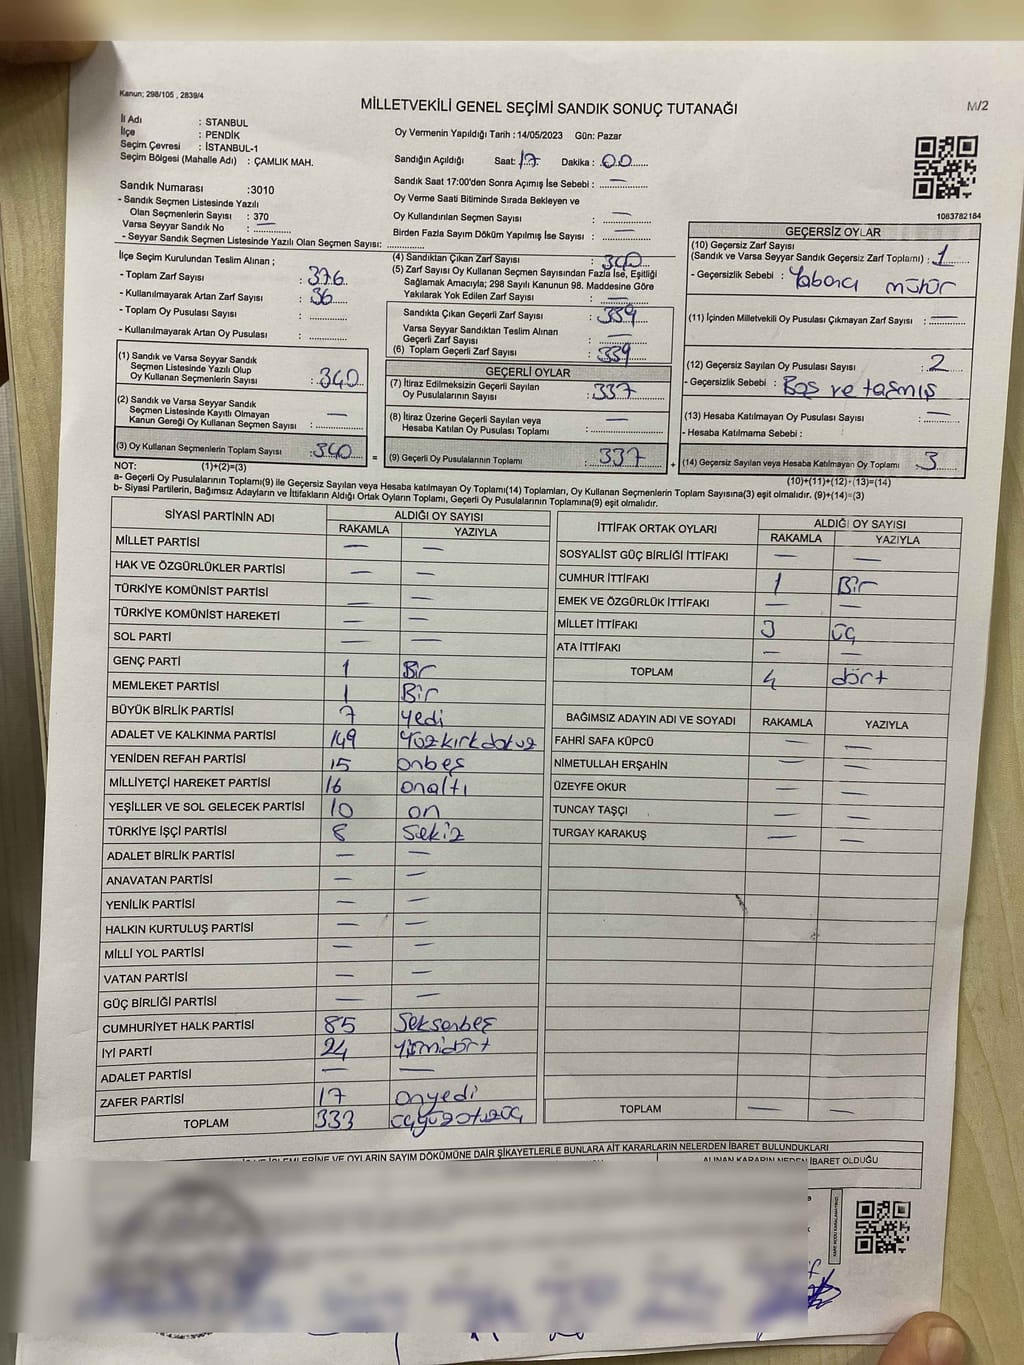 Kanun; 298/105 , 2839/4
MİLLETVEKİLİ GENEL SEÇİMİ SANDIK SONUÇ TUTANAĞI
M/2
İl Adı : STANBUL
İlçe : PENDİK
Seçim Çevresi : İSTANBUL-1
Seçim Bölgesi (Mahalle Adı) : ÇAMLIK MAH.
Sandık Numarası :3010
- Sandık Seçmen Listesinde Yazılı
Olan Seçmenlerin Sayısı : 370
Varsa Seyyar Sandık No : —
- Seyyar Sandık Seçmen Listesinde Yazılı Olan Seçmenlerin Sayısı: ..............
Oy Vermenin Yapıldığı Tarih : 14/05/2023 Gün: Pazar
Sandığın Açıldığı Saat: 17 Dakika : 00
Sandık Saat 17:00'den Sonra Açımış İse Sebebi : —
Oy Verme Saati Bitiminde Sırada Bekleyen ve
Oy Kullandırılan Seçmen Sayısı : —
Birden Fazla Sayım Döküm Yapılmış İse Sayısı : —
1083782184
İlçe Seçim Kurulundan Teslim Alınan ;
- Toplam Zarf Sayısı : 376
- Kullanılmayarak Artan Zarf Sayısı : 36
- Toplam Oy Pusulası Sayısı : ..............
- Kullanılmayarak Artan Oy Pusulası : ..............
(1) Sandık ve Varsa Seyyar Sandık
Seçmen Listesinde Yazılı Olup
Oy Kullanan Seçmenlerin Sayısı : 340
(2) Sandık ve Varsa Seyyar Sandık
Seçmen Listesinde Kayıtlı Olmayan
Kanun Gereği Oy Kullanan Seçmen Sayısı : —
(3) Oy Kullanan Seçmenlerin Toplam Sayısı : 340
=
(4) Sandıktan Çıkan Zarf Sayısı : 340
(5) Zarf Sayısı Oy Kullanan Seçmen Sayısından Fazla İse, Eşitliği
Sağlamak Amacıyla; 298 Sayılı Kanunun 98. Maddesine Göre
Yakılarak Yok Edilen Zarf Sayısı : —
Sandıkta Çıkan Geçerli Zarf Sayısı : 339
Varsa Seyyar Sandıktan Teslim Alınan
Geçerli Zarf Sayısı : —
(6) Toplam Geçerli Zarf Sayısı : 339
GEÇERLİ OYLAR
(7) İtiraz Edilmeksizin Geçerli Sayılan
Oy Pusulalarının Sayısı : 337
(8) İtiraz Üzerine Geçerli Sayılan veya
Hesaba Katılan Oy Pusulası Toplamı : —
(9) Geçerli Oy Pusulalarının Toplamı : 337
+
GEÇERSİZ OYLAR
(10) Geçersiz Zarf Sayısı
(Sandık ve Varsa Seyyar Sandık Geçersiz Zarf Toplamı) : 1
- Geçersizlik Sebebi : Yabancı mühür
(11) İçinden Milletvekili Oy Pusulası Çıkmayan Zarf Sayısı : —
(12) Geçersiz Sayılan Oy Pusulası Sayısı : 2
- Geçersizlik Sebebi : Boş ve taşmış
(13) Hesaba Katılmayan Oy Pusulası Sayısı : —
- Hesaba Katılmama Sebebi :
(14) Geçersiz Sayılan veya Hesaba Katılmayan Oy Toplamı : 3
NOT: (1)+(2)=(3)
(10)+(11)+(12)+(13)=(14)
a- Geçerli Oy Pusulaları Toplamı(9) ile Geçersiz Sayılan veya Hesaba katılmayan Oy Toplamı(14) Toplamları, Oy Kullanan Seçmenlerin Toplam Sayısına(3) eşit olmalıdır. (9)+(14)=(3)
b- Siyasi Partilerin, Bağımsız Adayların ve İttifakların Aldığı Ortak Oyların Toplamı, Geçerli Oy Pusulalarının Toplamına(9) eşit olmalıdır.
SİYASİ PARTİNİN ADI ALDIĞI OY SAYISI
RAKAMLA YAZIYLA
MİLLET PARTİSİ — —
HAK VE ÖZGÜRLÜKLER PARTİSİ — —
TÜRKİYE KOMÜNİST PARTİSİ — —
TÜRKİYE KOMÜNİST HAREKETİ — —
SOL PARTİ — —
GENÇ PARTİ 1 Bir
MEMLEKET PARTİSİ 1 Bir
BÜYÜK BİRLİK PARTİSİ 7 yedi
ADALET VE KALKINMA PARTİSİ 149 Yüzkırkdokuz
YENİDEN REFAH PARTİSİ 15 onbeş
MİLLİYETÇİ HAREKET PARTİSİ 16 onaltı
YEŞİLLER VE SOL GELECEK PARTİSİ 10 on
TÜRKİYE İŞÇİ PARTİSİ 8 Sekiz
ADALET BİRLİK PARTİSİ — —
ANAVATAN PARTİSİ — —
YENİLİK PARTİSİ — —
HALKIN KURTULUŞ PARTİSİ — —
MİLLİ YOL PARTİSİ — —
VATAN PARTİSİ — —
GÜÇ BİRLİĞİ PARTİSİ — —
CUMHURİYET HALK PARTİSİ 85 Seksenbeş
İYİ PARTİ 24 Yirmidört
ADALET PARTİSİ — —
ZAFER PARTİSİ 17 Onyedi
TOPLAM 333 üçyüzotuzüç
İTTİFAK ORTAK OYLARI ALDIĞI OY SAYISI
RAKAMLA YAZIYLA
SOSYALİST GÜÇ BİRLİĞİ İTTİFAKI — —
CUMHUR İTTİFAKI 1 Bir
EMEK VE ÖZGÜRLÜK İTTİFAKI — —
MİLLET İTTİFAKI 3 üç
ATA İTTİFAKI — —
TOPLAM 4 dört
BAĞIMSIZ ADAYIN ADI VE SOYADI RAKAMLA YAZIYLA
FAHRİ SAFA KÜPCÜ — —
NİMETULLAH ERŞAHİN — —
ÜZEYFE OKUR — —
TUNCAY TAŞÇI — —
TURGAY KARAKUŞ — —
TOPLAM — —
İŞLEMLERİNE VE OYLARIN SAYIM DÖKÜMÜNE DAİR ŞİKAYETLERLE BUNLARA AİT KARARLARIN NELERDEN İBARET BULUNDUKLARI
ALINAN KARARIN NEDEN İBARET OLDUĞU